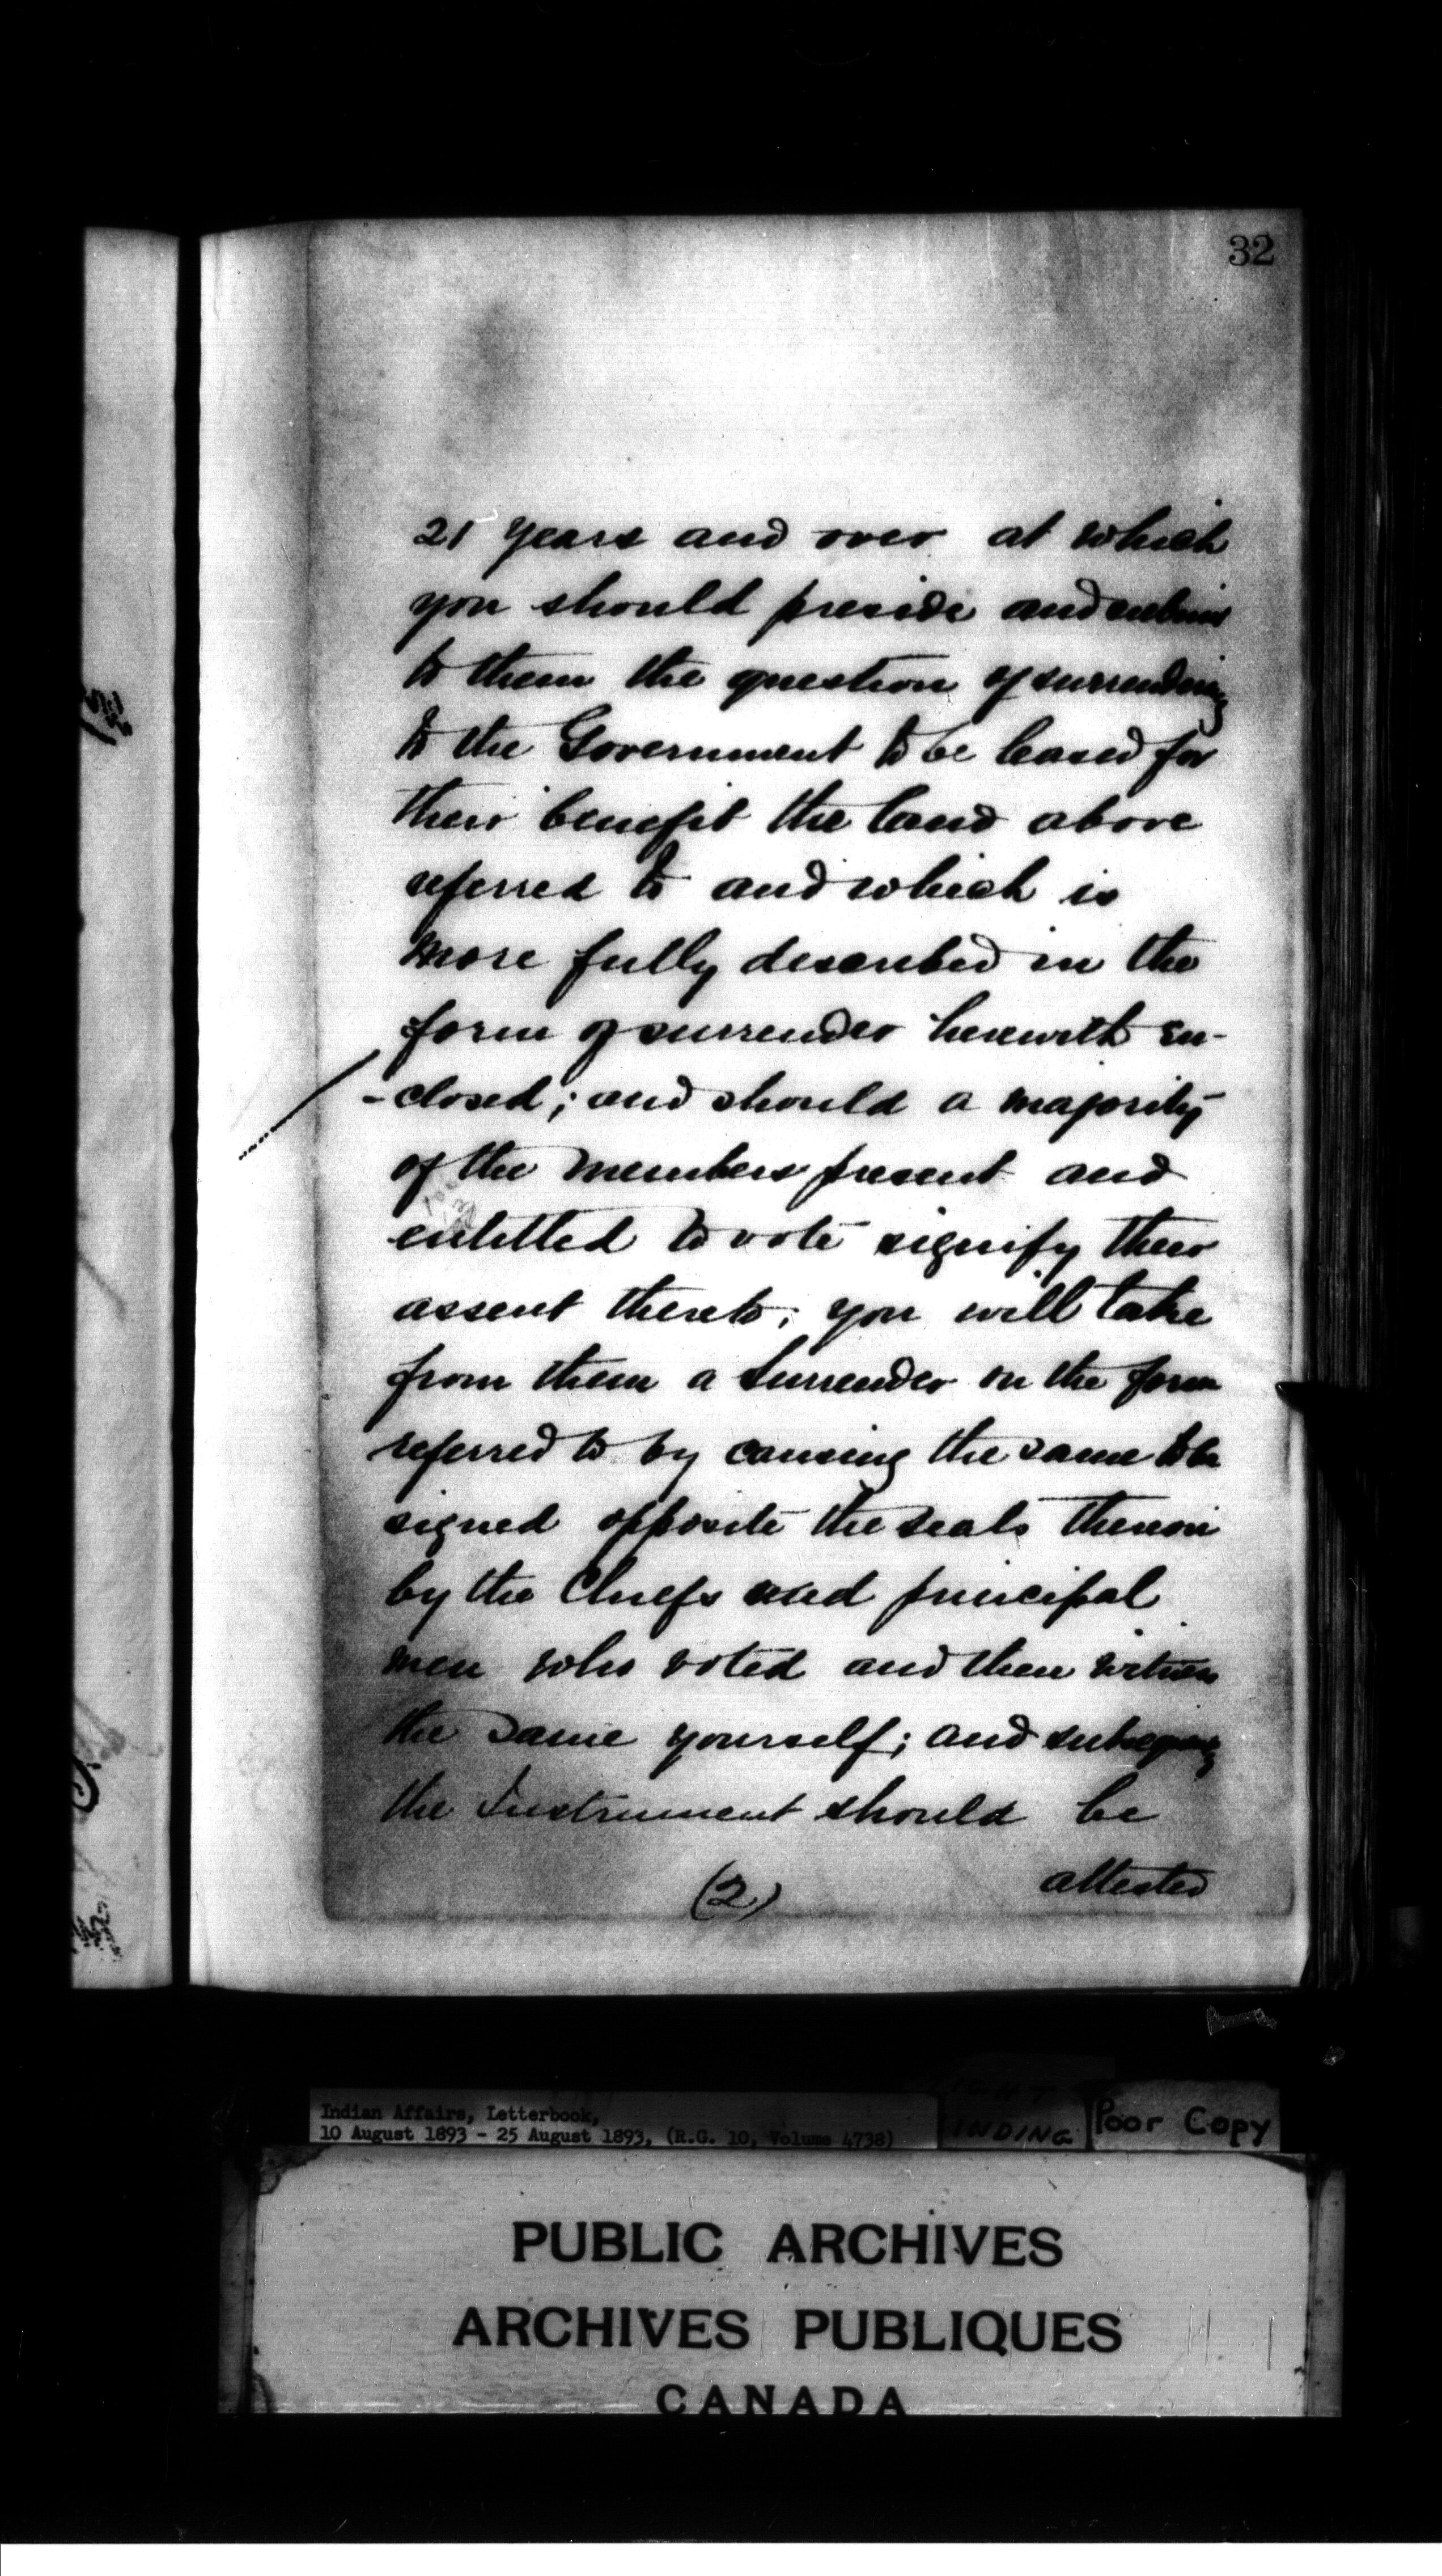 32
21 years and over at which
you should preside and submit
to them the question of surrendering
to the Government to be leased for
their benefit the land above
referred to and which is
more fully described in the
form of surrender herewith en-
-closed; and should a majority
of the members present and
entitled to vote signify their
assent thereto; you will take
from them a surrender on the form
referred to by causing the same to be
signed opposite the seals thereon
by the Chiefs and principal
men who voted and then witness
the same yourself; and
the Instrument should be
(2) attested
Indian Affairs, Letterbook,
10 August 1893 - 25 August 1893, (R.G. 10, Volume 4738)
Poor Copy
PUBLIC ARCHIVES
ARCHIVES PUBLIQUES
CANADA